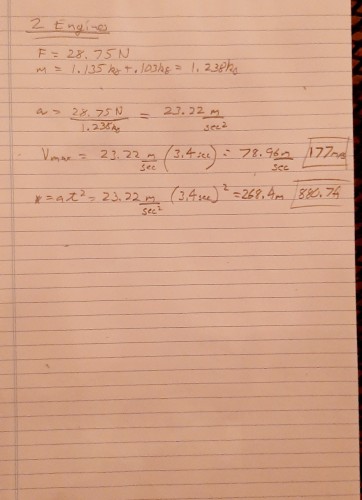 2 Engines
F = 28.75 N
m = 1.135 kg + .103 kg = 1.238 kg
a = 28.75 N / 1.238 kg = 23.22 m/sec²
Vmax = 23.22 m/sec (3.4 sec) = 78.96 m/sec 177 mph
x = at² = 23.22 m/sec² (3.4 sec)² = 268.4 m